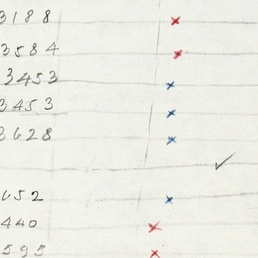 3188 x
3584 x
3453 x
3453 x
3628 x
✓
652 x
440 x
595 x